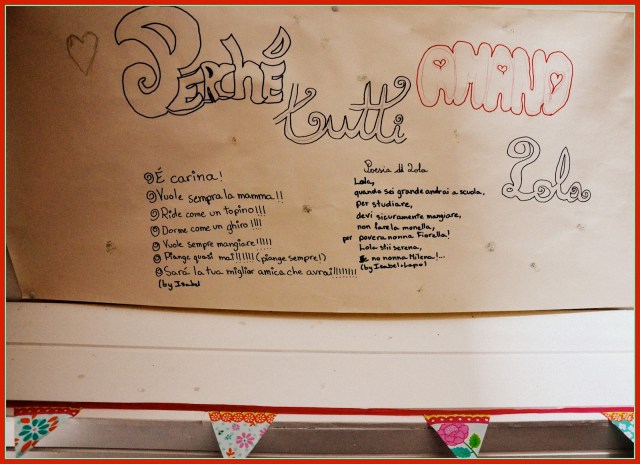 Perché
tutti
AMANO
Lola
È carina!
Vuole sempre la mamma!!
Ride come un topino!!!
Dorme come un ghiro!!!!
Vuole sempre mangiare!!!!!
Piange quasi mai!!!!!!(piange sempre!)
Sarà la tua miglior amica che avrai!!!!!!!!
(by Isabel
Poesia di Lola
Lola,
quando sei grande andrai a scuola,
per studiare,
devi sicuramente mangiare,
non fare la monella,
per povera nonna Fiorella!
Lola stii serena,
no nonna Milena!...
(by Isabel+Lapo)